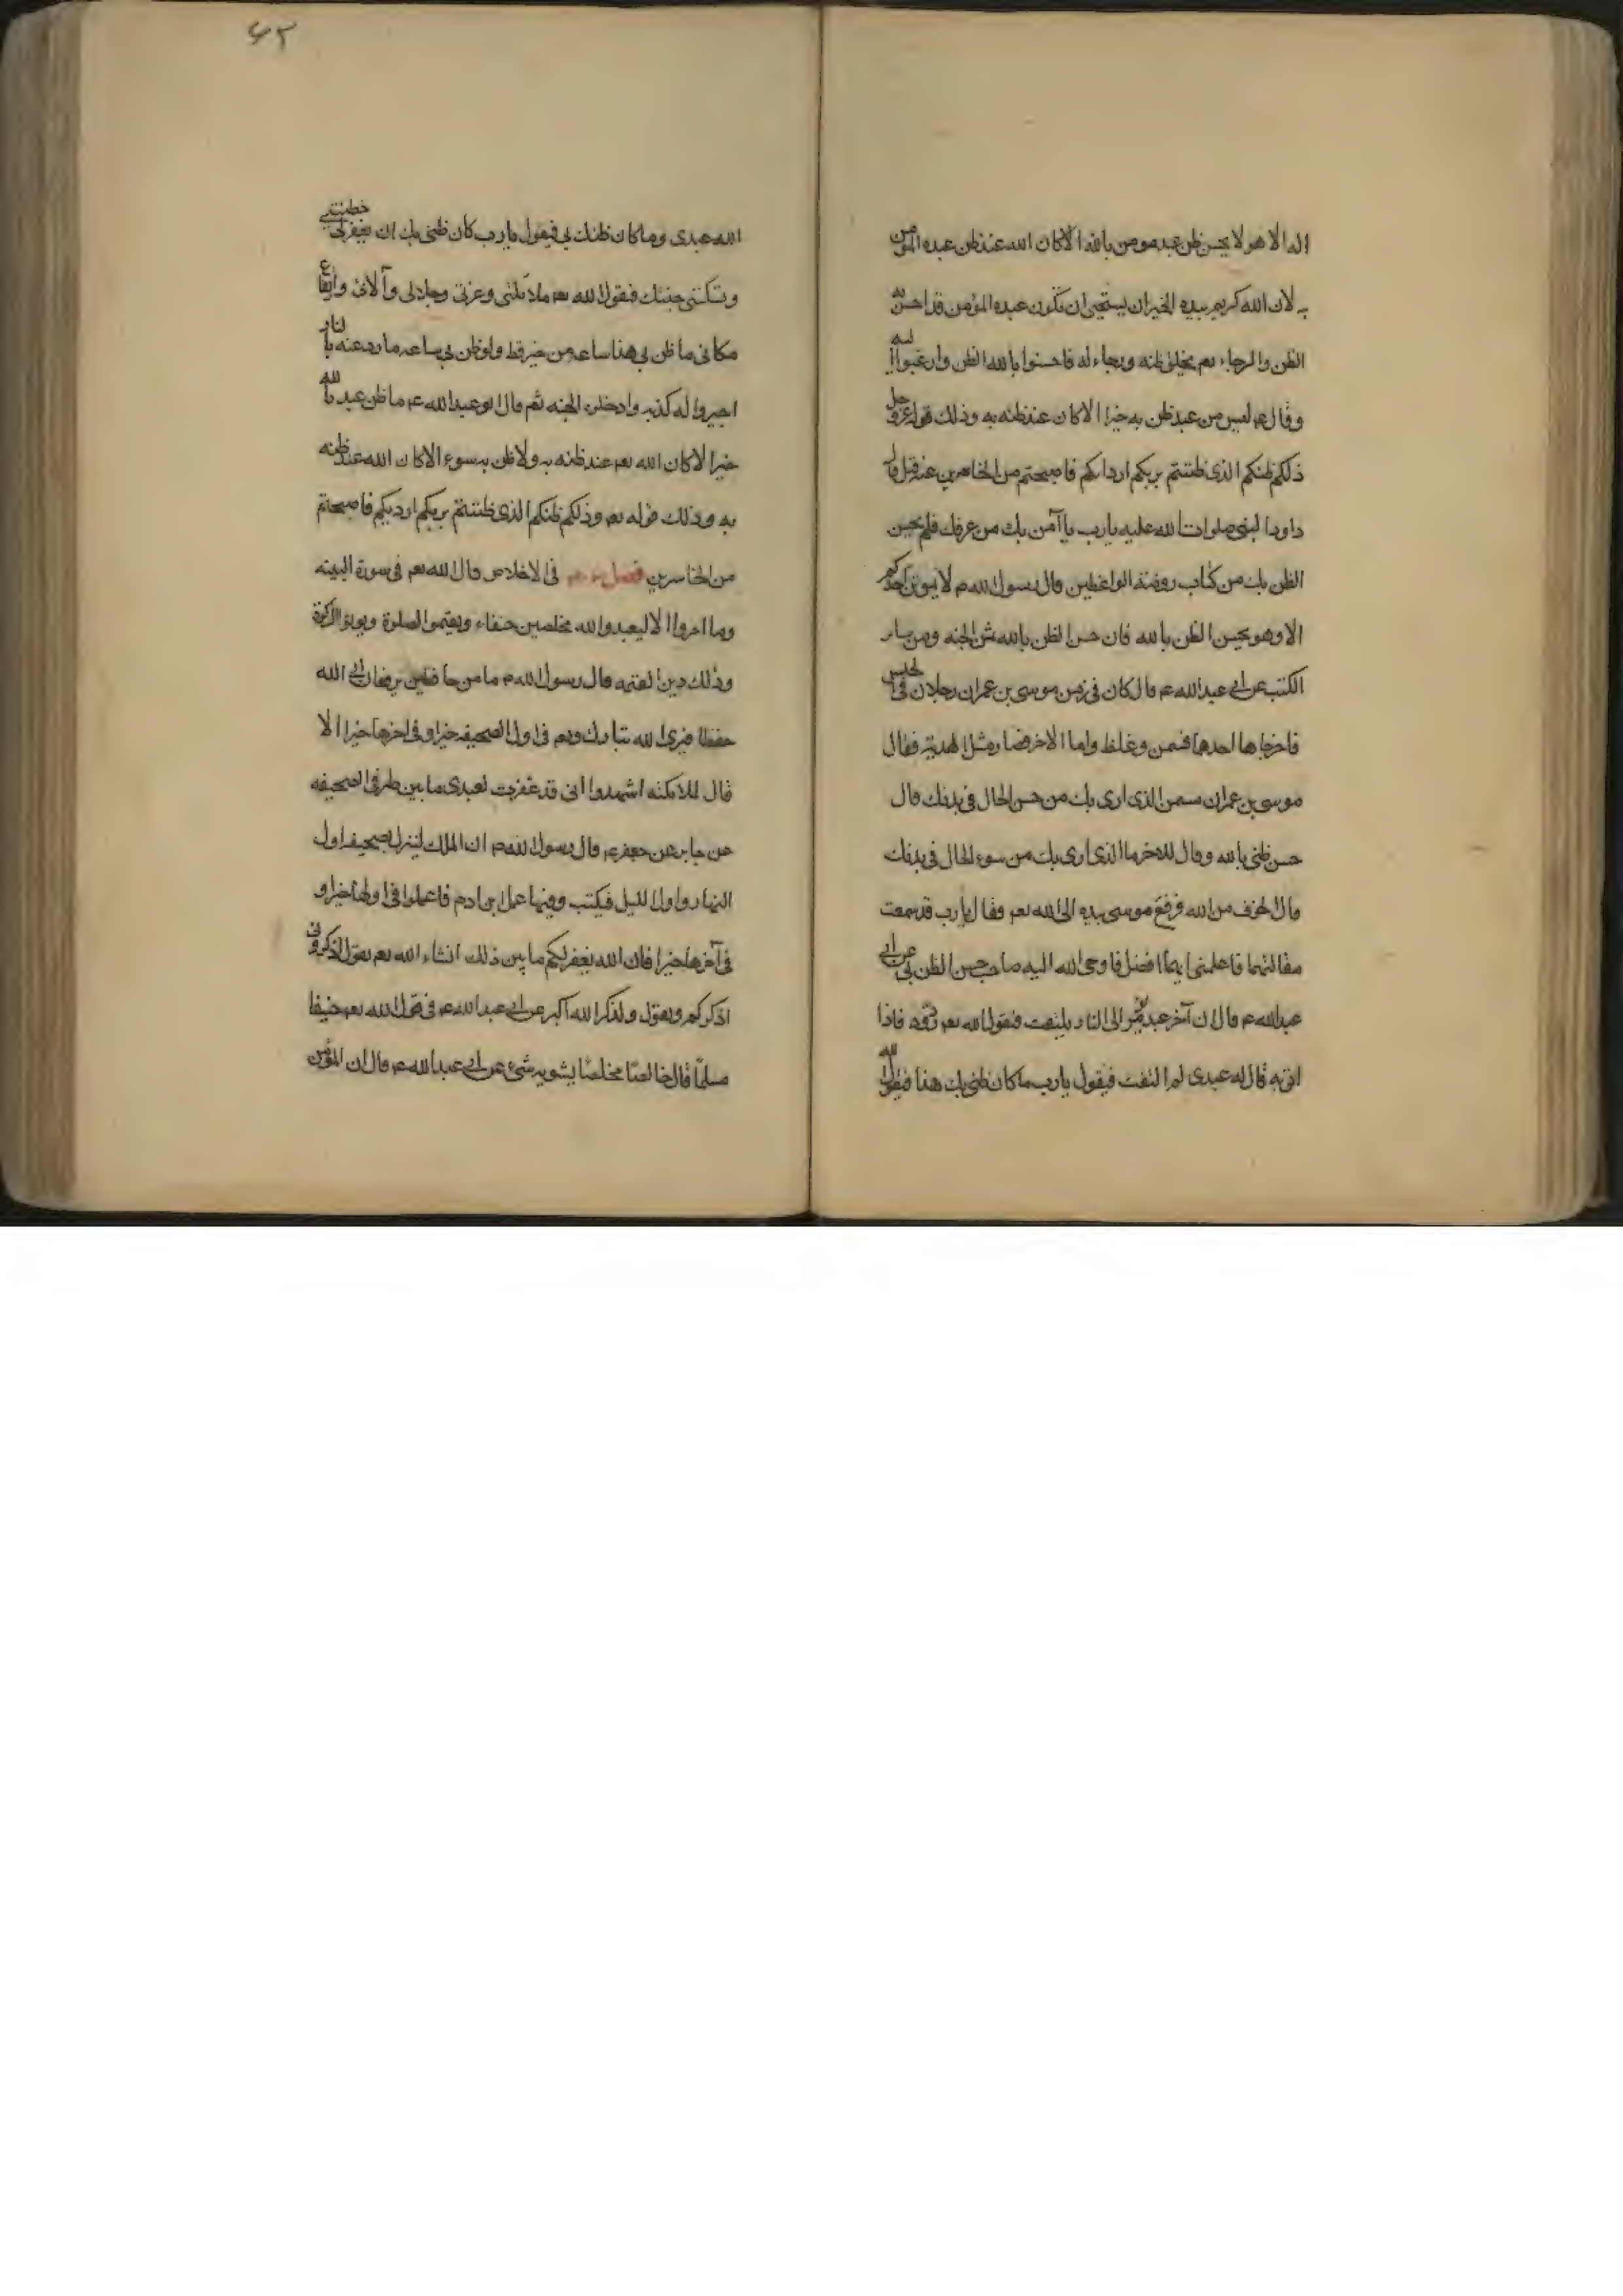 اله الا هو لا يحسن ظن عبد مومن بالله الا كان الله عند ظن عبده المومن
به لان الله كريم بيده الخير ان يستحيى ان يكون عبده المؤمن قد احسن به
الظن والرجاء ثم يخلف ظنه ورجاء له فاحسنوا بالله الظن وارغبوا اليه
وقال ع ليس من عبد ظن به خيرا الا كان عند ظنه به وذلك قوله عز وجل
ذلكم ظنكم الذى ظننتم بربكم ارداكم فاصبحتم من الخاسرين عنه قيل قال
داود النبى صلوات الله عليه يا رب ما آمن بك من عرفك فلم يحسن
الظن بك من كتاب روضة الواعظين قال رسول الله ص لا يموتن احدكم
الا وهو يحسن الظن بالله فان حسن الظن بالله ثمن الجنه ومن ساير
الكتب عن ابى عبد الله ع قال كان فى زمن موسى بن عمران رجلان فى الحبس
فاخرجا فاما احدهما فسمن وغلظ واما الاخر فصار مثل الهدبة فقال
موسى بن عمران للسمين ما الذى ارى بك من حسن الحال فى بدنك قال
حسن ظنى بالله وقال للاخر ما الذى ارى بك من سوء الحال فى بدنك
قال الخوف من الله فرفع موسى يده الى الله تعم فقال يا رب قد سمعت
مقالتهما فاعلمنى ايهما افضل فاوحى الله اليه صاحب حسن الظن بى عن ابى
عبد الله ع قال ان آخر عبد يؤمر الى النار يلتفت فيقول الله تعم ردوه فاذا
اتى به قال له عبدى لم التفت فيقول يا رب ما كان ظنى بك هذا فيقول الله
٤٢
الله عبدى وما كان ظنك بى فيقول يا رب كان ظنى بك ان تغفر لى خطيئتى
وتسكننى جنتك فيقول الله تعم ملائكتى وعزتى وجلالى وآلائى وارتفاع
مكانى ما ظن بى هذا ساعه من خير قط ولو ظن بى ساعه ما روعته بالنار
اجيزوا له كذبه وادخلوه الجنه ثم قال ابو عبد الله ع ما ظن عبد بالله
خيرا الا كان الله تعم عند ظنه به ولا ظن به سوء الا كان الله عند ظنه
به وذلك قوله تعم وذلكم ظنكم الذى ظننتم بربكم ارديكم فاصبحتم
من الخاسرين فصل فى الاخلاص قال الله تعم فى سورة البينه
وما امروا الا ليعبدوا الله مخلصين حنفاء ويقيموا الصلوة ويؤتوا الزكوة
وذلك دين القيمه قال رسول الله ص ما من حافظين يرفعان الى الله
حفظا فيرى الله تبارك وتعم فى اول الصحيفه خيرا وفى اخرها خيرا الا
قال للملائكته اشهدوا انى قد غفرت لعبدى ما بين طرفى الصحيفه
عن جابر عن جعفر ع قال رسول الله ص ان الملك لينزل بصحيفه اول
النهار واول الليل فيكتب وفيها عمل ابن ادم فاعملوا فى اولها خيرا و
فى آخرها خيرا فان الله يغفر لكم ما بين ذلك انشاء الله تعم يقول اذكرونى
اذكركم ويقول ولذكر الله اكبر عن ابى عبد الله ع فى قول الله تعم حنيفا
مسلما قال خالصا مخلصا يشوبه شئ عن ابى عبد الله ع قال ان المؤمن